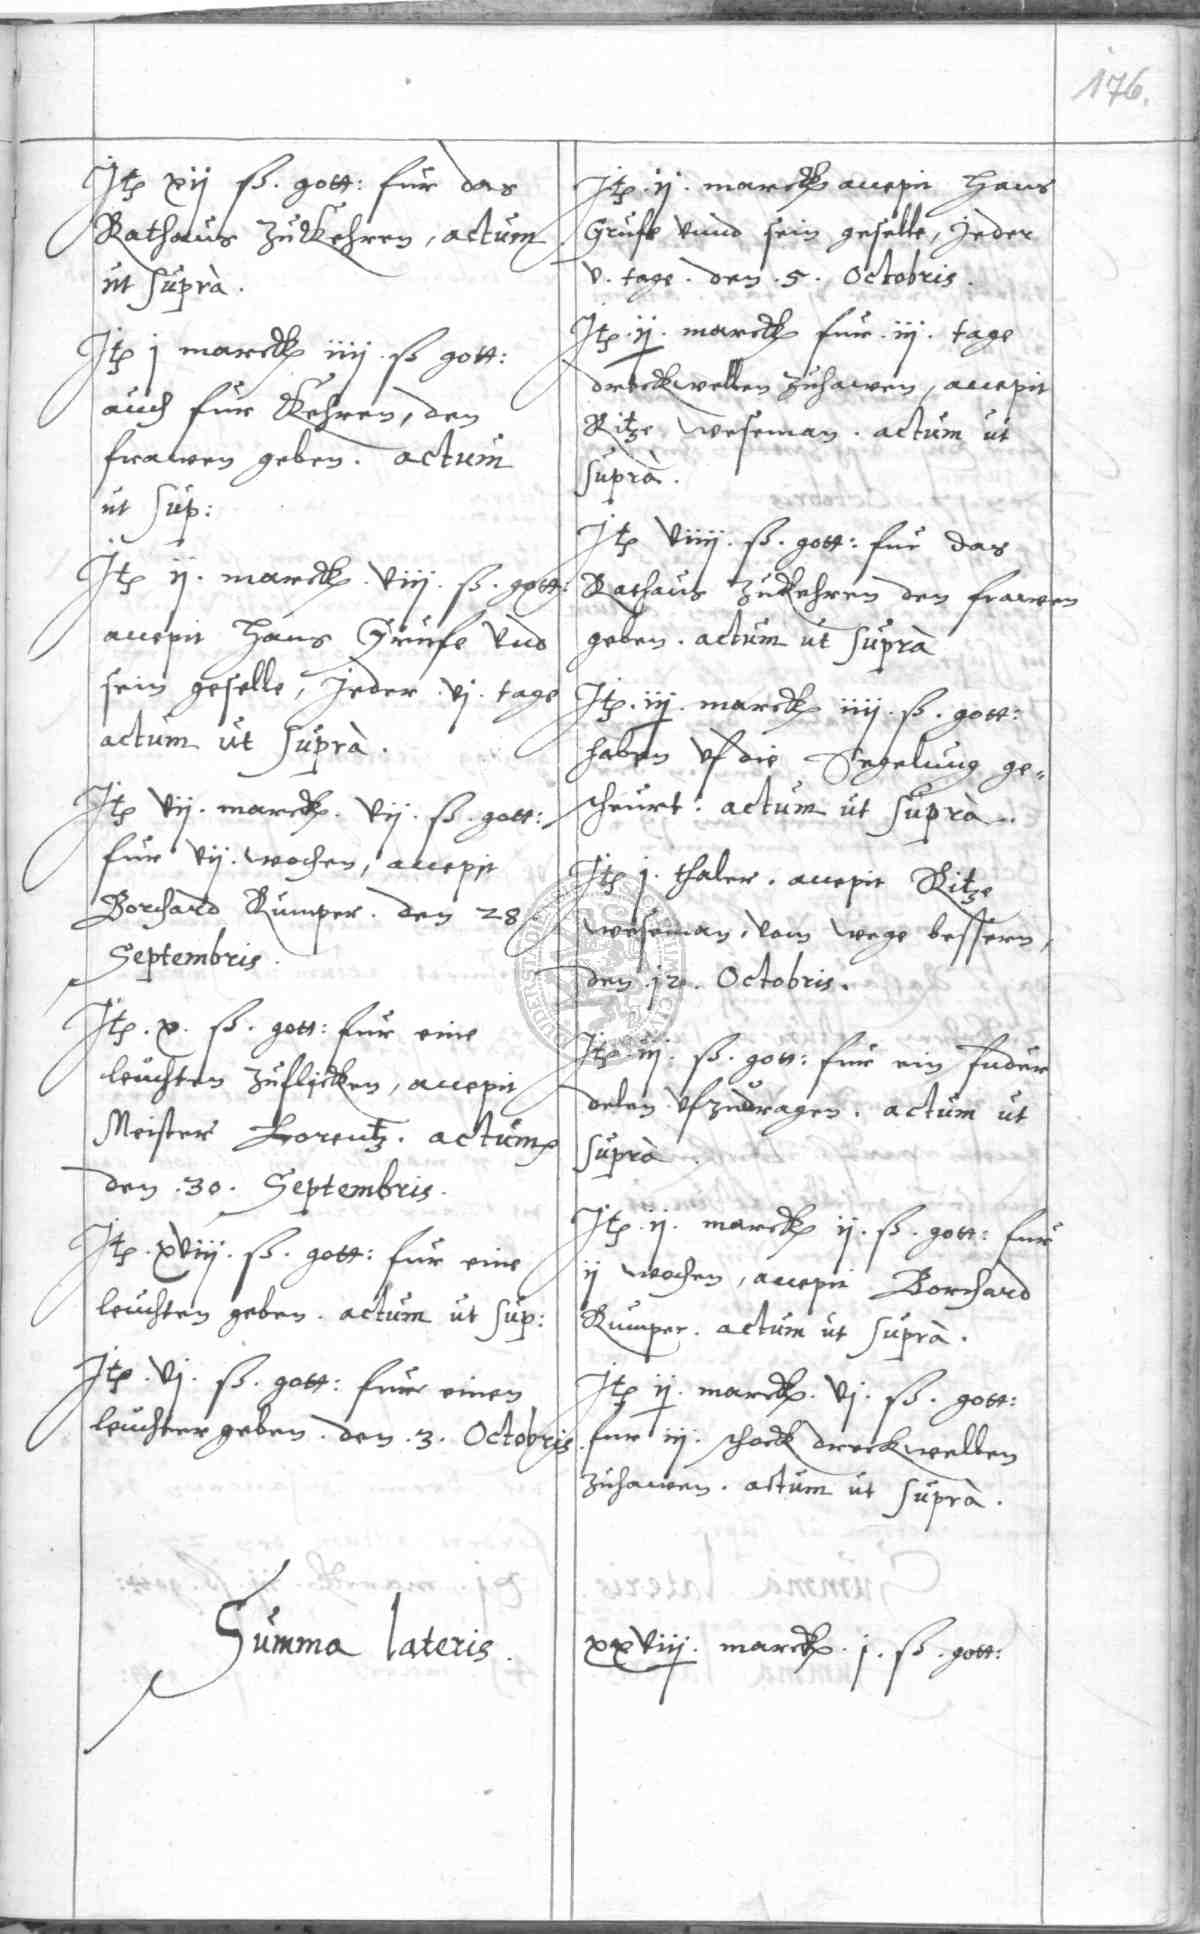 176.
Itȩ xij ß. gott: fur das
Rathaus zukehren, actum
ut suprà.
Itȩ j marck iiij ß gott:
auch fur kehren, den
frawen geben. actum
ut sup:
Itȩ ij. marck. viij. ß. gott:
accepit Hans Grufe vnd
sein geselle, Jeder .vj. tage
actum ut suprà.
Itȩ vij. marck. vij. ß. gott:
fur vij. wochen, accepit
Borchard Rumper. den 28
Septembris.
Itȩ. x. ß. gott: fur eine
leuchten zuflicken, accepit
Meister Lorentz. actum
den .30. Septembris.
Itȩ. xviij. ß. gott: fur eine
leuchten geben. actum ut sup:
Itȩ. vj. ß. gott: fur einen
leuchter geben. den .3. Octobris
Itȩ. ij. marck accepit Hans
Grufe vnnd sein geselle, Jeder
v. tage. den .5. Octobris.
Itȩ. ij. marck fur .iij. tage
dreckwellen zuhawen, accepit
Ritze weseman. actum ut
suprà.
Itȩ viiij. ß. gott: fur das
Rathaus zukehren den frawen
geben. actum ut suprà
Itȩ. iij. marck iiij. ß. gott:
haben vf die Segelung ge„
scheurt. actum ut suprà.
Itȩ j. thaler. accepit Ritze
weseman, vom wege bessern,
den .12. Octobris.
Itȩ. iij. ß. gott: fur ein fuder
delen vfzudragen. actum ut
suprà.
Itȩ. ij. marck ij. ß. gott: fur
ij wochen, accepit Borchard
Rumper. actum ut suprà.
Itȩ ij. marck. vj. ß. gott:
fur iij. schock dreckwellen
zuhawen. actum ut suprà.
Summa lateris.
xxviij. marck. j. ß. gott: